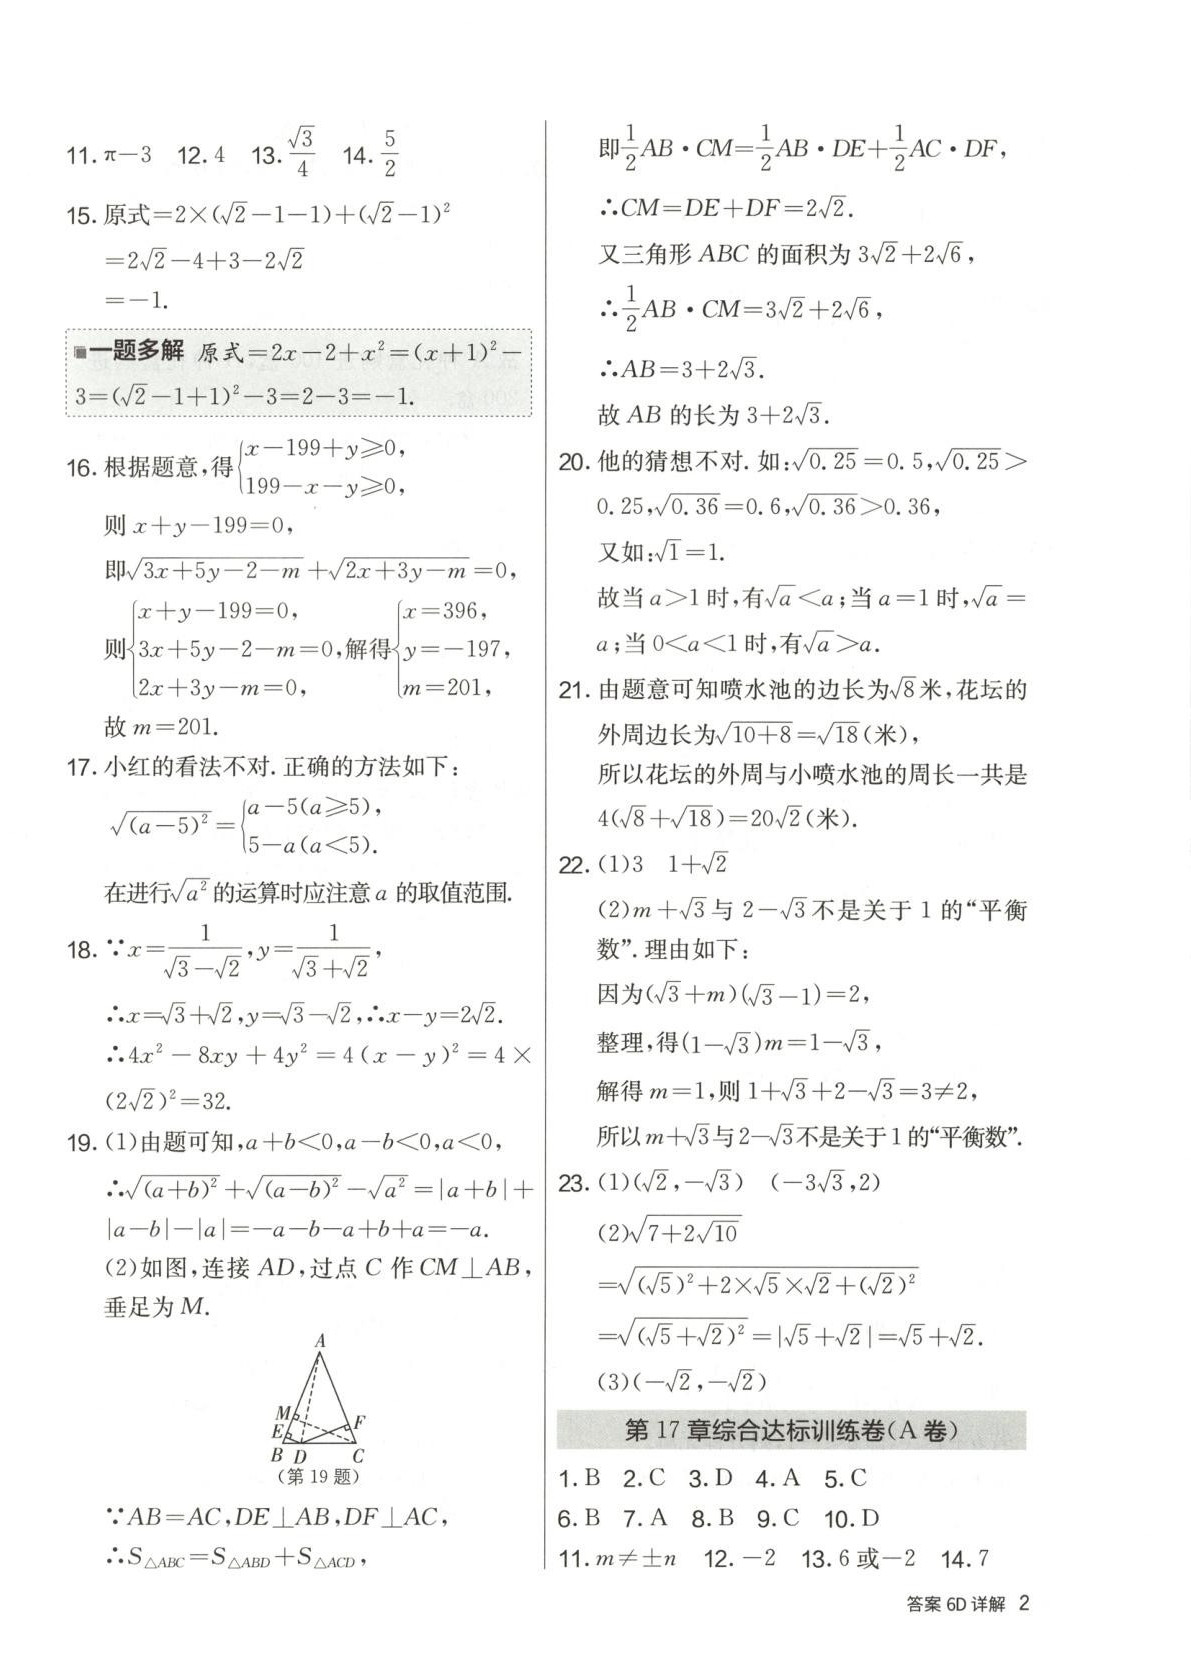 11. π－3　12. 4　13. √3/4　14. 5/2
15. 原式＝2×(√2－1－1)＋(√2－1)²
＝2√2－4＋3－2√2
＝－1.
一题多解 原式＝2x－2＋x²＝(x＋1)²－
3＝(√2－1＋1)²－3＝2－3＝－1.
16. 根据题意,得{x－199＋y⩾0, 199－x－y⩾0,
则 x＋y－199＝0,
即√(3x＋5y－2－m)＋√(2x＋3y－m)＝0,
则{x＋y－199＝0, 3x＋5y－2－m＝0, 2x＋3y－m＝0, 解得{x＝396, y＝－197, m＝201,
故 m＝201.
17. 小红的看法不对. 正确的方法如下:
√((a－5)²)＝{a－5(a⩾5), 5－a(a＜5).
在进行√(a²)的运算时应注意 a 的取值范围.
18. ∵x＝1/(√3－√2),y＝1/(√3＋√2),
∴x＝√3＋√2,y＝√3－√2,∴x－y＝2√2.
∴4x²－8xy＋4y²＝4(x－y)²＝4×
(2√2)²＝32.
19. (1)由题可知,a＋b＜0,a－b＜0,a＜0,
∴√((a＋b)²)＋√((a－b)²)－√(a²)＝|a＋b|＋
|a－b|－|a|＝－a－b－a＋b＋a＝－a.
(2)如图,连接 AD,过点 C 作 CM⊥AB,
垂足为 M.
A
M
F
E
B D C
(第 19 题)
∵AB＝AC,DE⊥AB,DF⊥AC,
∴S△ABC＝S△ABD＋S△ACD,
即1/2AB·CM＝1/2AB·DE＋1/2AC·DF,
∴CM＝DE＋DF＝2√2.
又三角形 ABC 的面积为 3√2＋2√6,
∴1/2AB·CM＝3√2＋2√6,
∴AB＝3＋2√3.
故 AB 的长为 3＋2√3.
20. 他的猜想不对. 如:√0.25＝0.5,√0.25＞
0.25,√0.36＝0.6,√0.36＞0.36,
又如:√1＝1.
故当 a＞1 时,有√a＜a;当 a＝1 时,√a＝
a;当 0＜a＜1 时,有√a＞a.
21. 由题意可知喷水池的边长为√8米,花坛的
外周边长为√(10＋8)＝√18(米),
所以花坛的外周与小喷水池的周长一共是
4(√8＋√18)＝20√2(米).
22. (1)3　1＋√2
(2)m＋√3与 2－√3不是关于 1 的“平衡
数”. 理由如下:
因为(√3＋m)(√3－1)＝2,
整理,得(1－√3)m＝1－√3,
解得 m＝1,则 1＋√3＋2－√3＝3≠2,
所以m＋√3与2－√3不是关于1的“平衡数”.
23. (1)(√2,－√3)　(－3√3,2)
(2)√(7＋2√10)
＝√((√5)²＋2×√5×√2＋(√2)²)
＝√((√5＋√2)²)＝|√5＋√2|＝√5＋√2.
(3)(－√2,－√2)
第 17 章综合达标训练卷(A 卷)
1. B　2. C　3. D　4. A　5. C
6. B　7. A　8. B　9. C　10. D
11. m≠±n　12. －2　13. 6 或－2　14. 7
答案 6D 详解　2